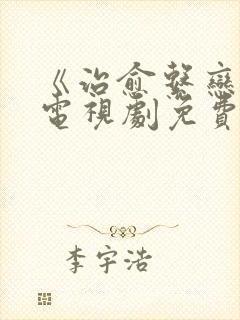 《治愈繫戀
電視劇免費
李宇浩